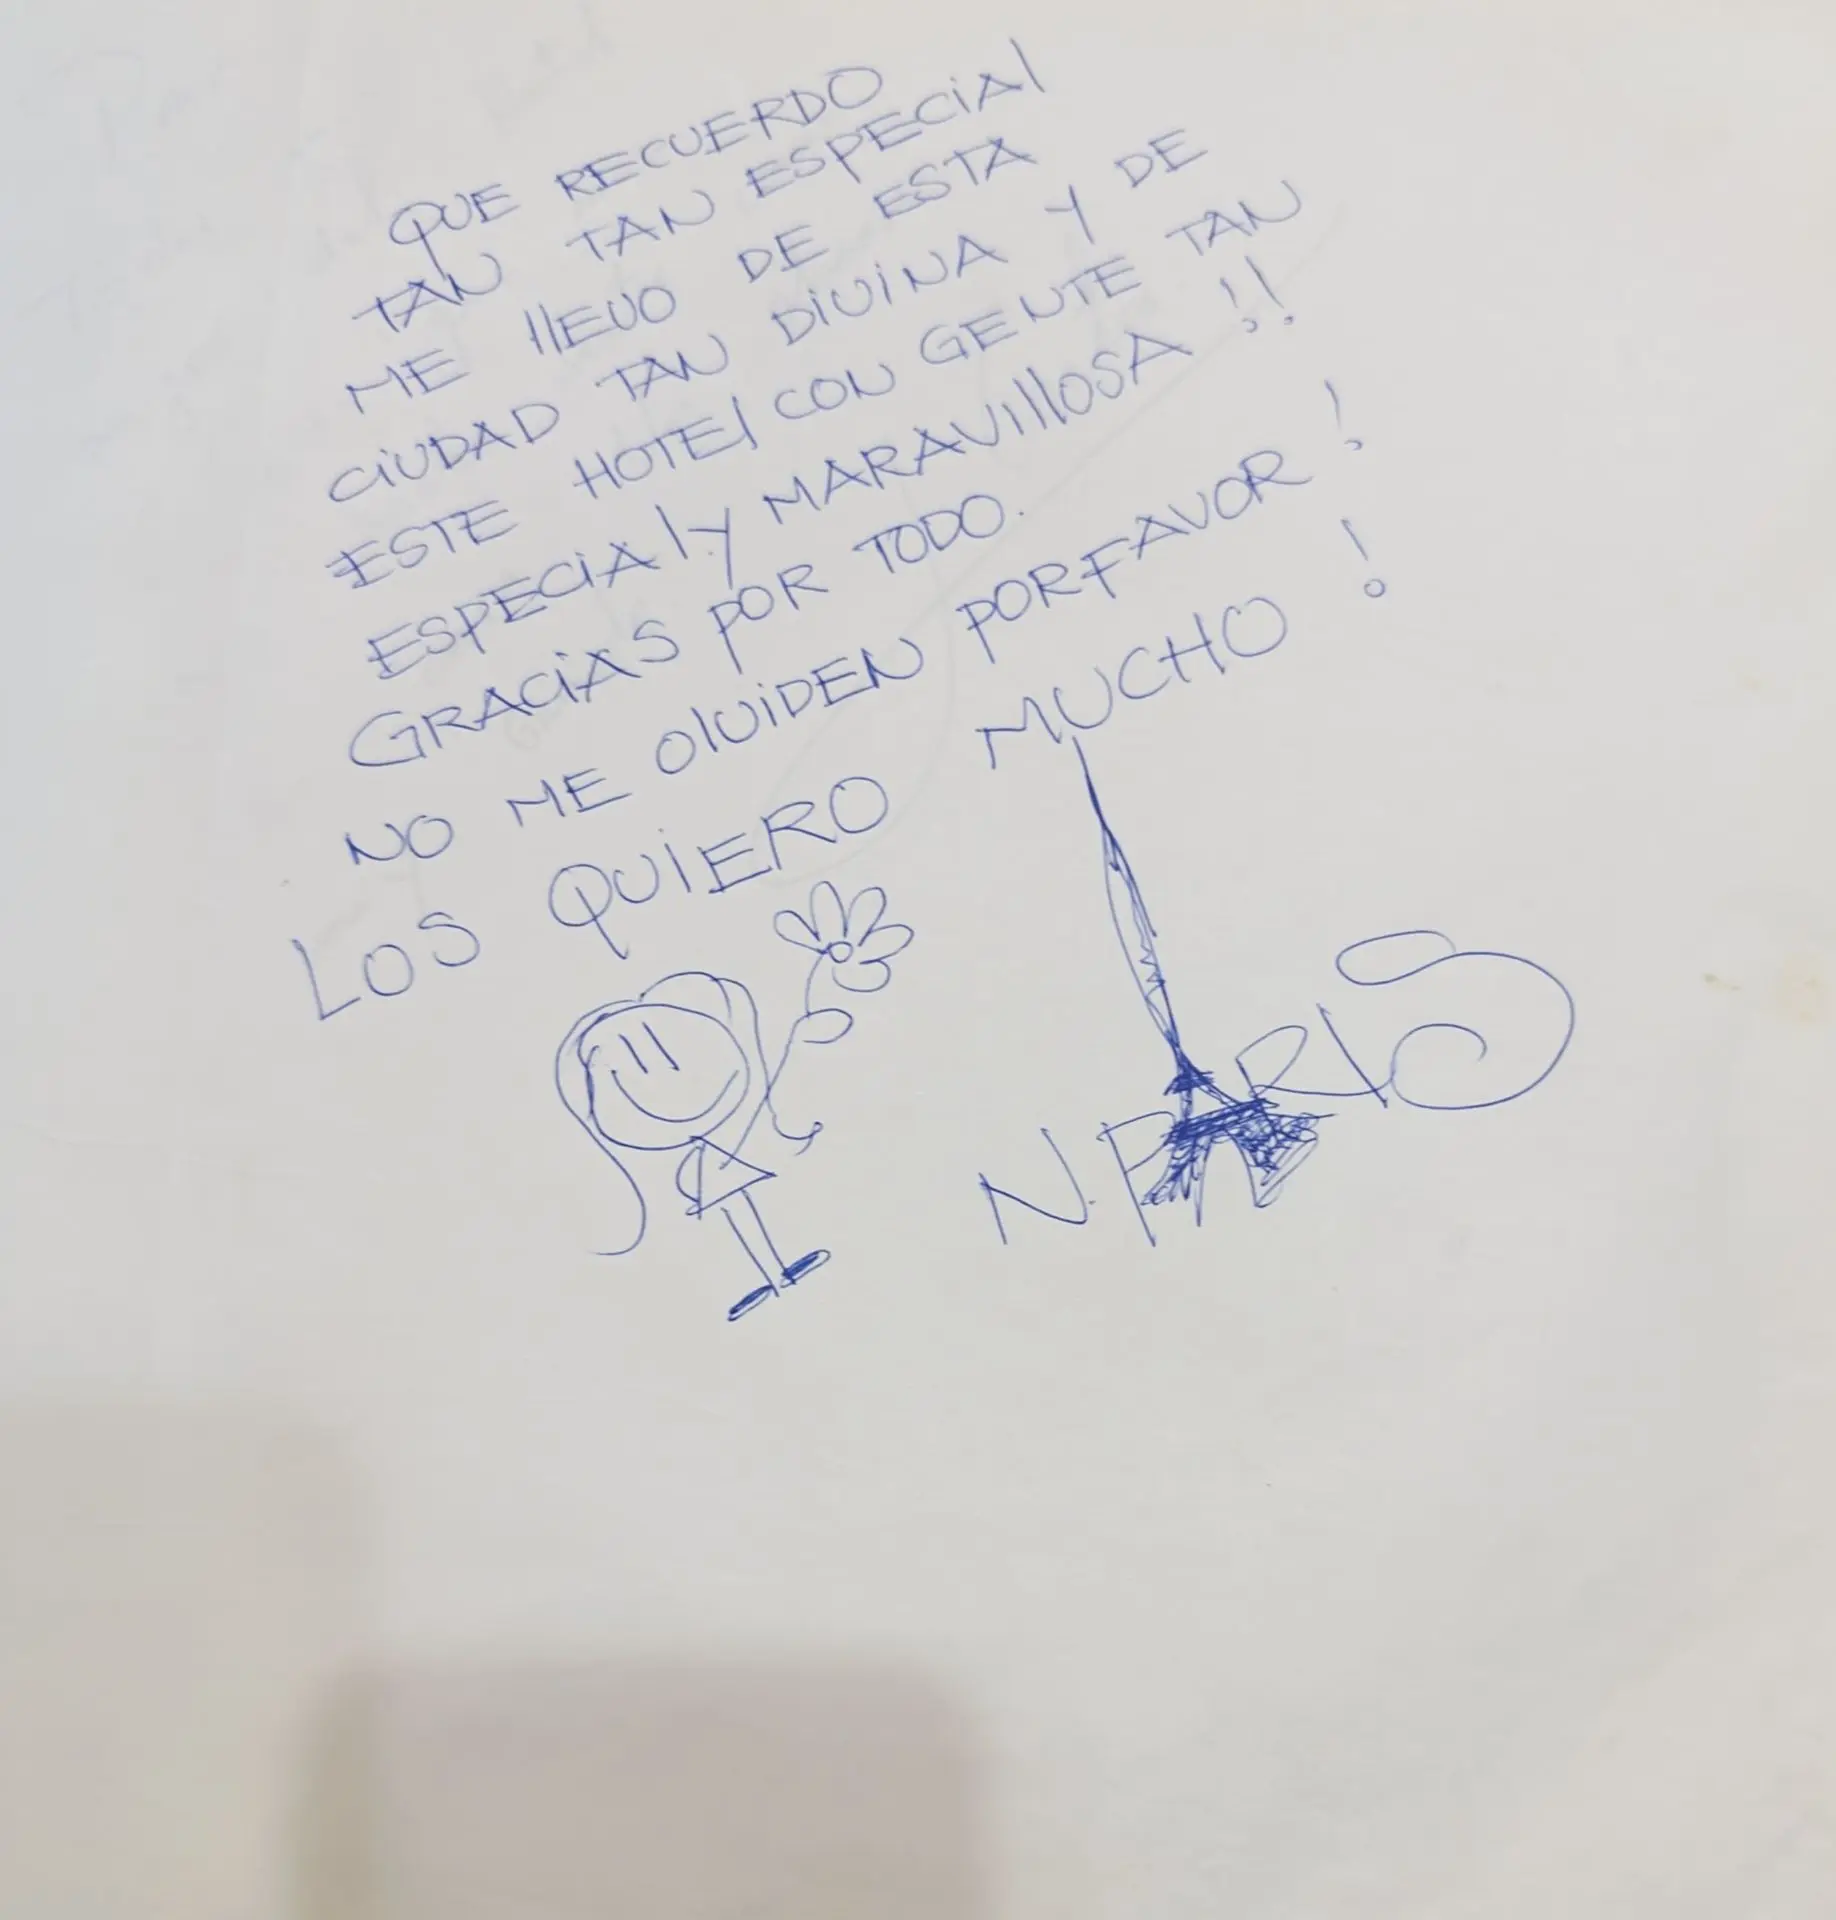 QUE RECUERDO
TAN TAN ESPECIAL
ME LLEVO DE ESTA
CIUDAD TAN DIVINA Y DE
ESTE HOTEL CON GENTE TAN
ESPECIAL Y MARAVILLOSA!!
GRACIAS POR TODO.
NO ME OLVIDEN PORFAVOR!
LOS QUIERO MUCHO!
N. PARIS